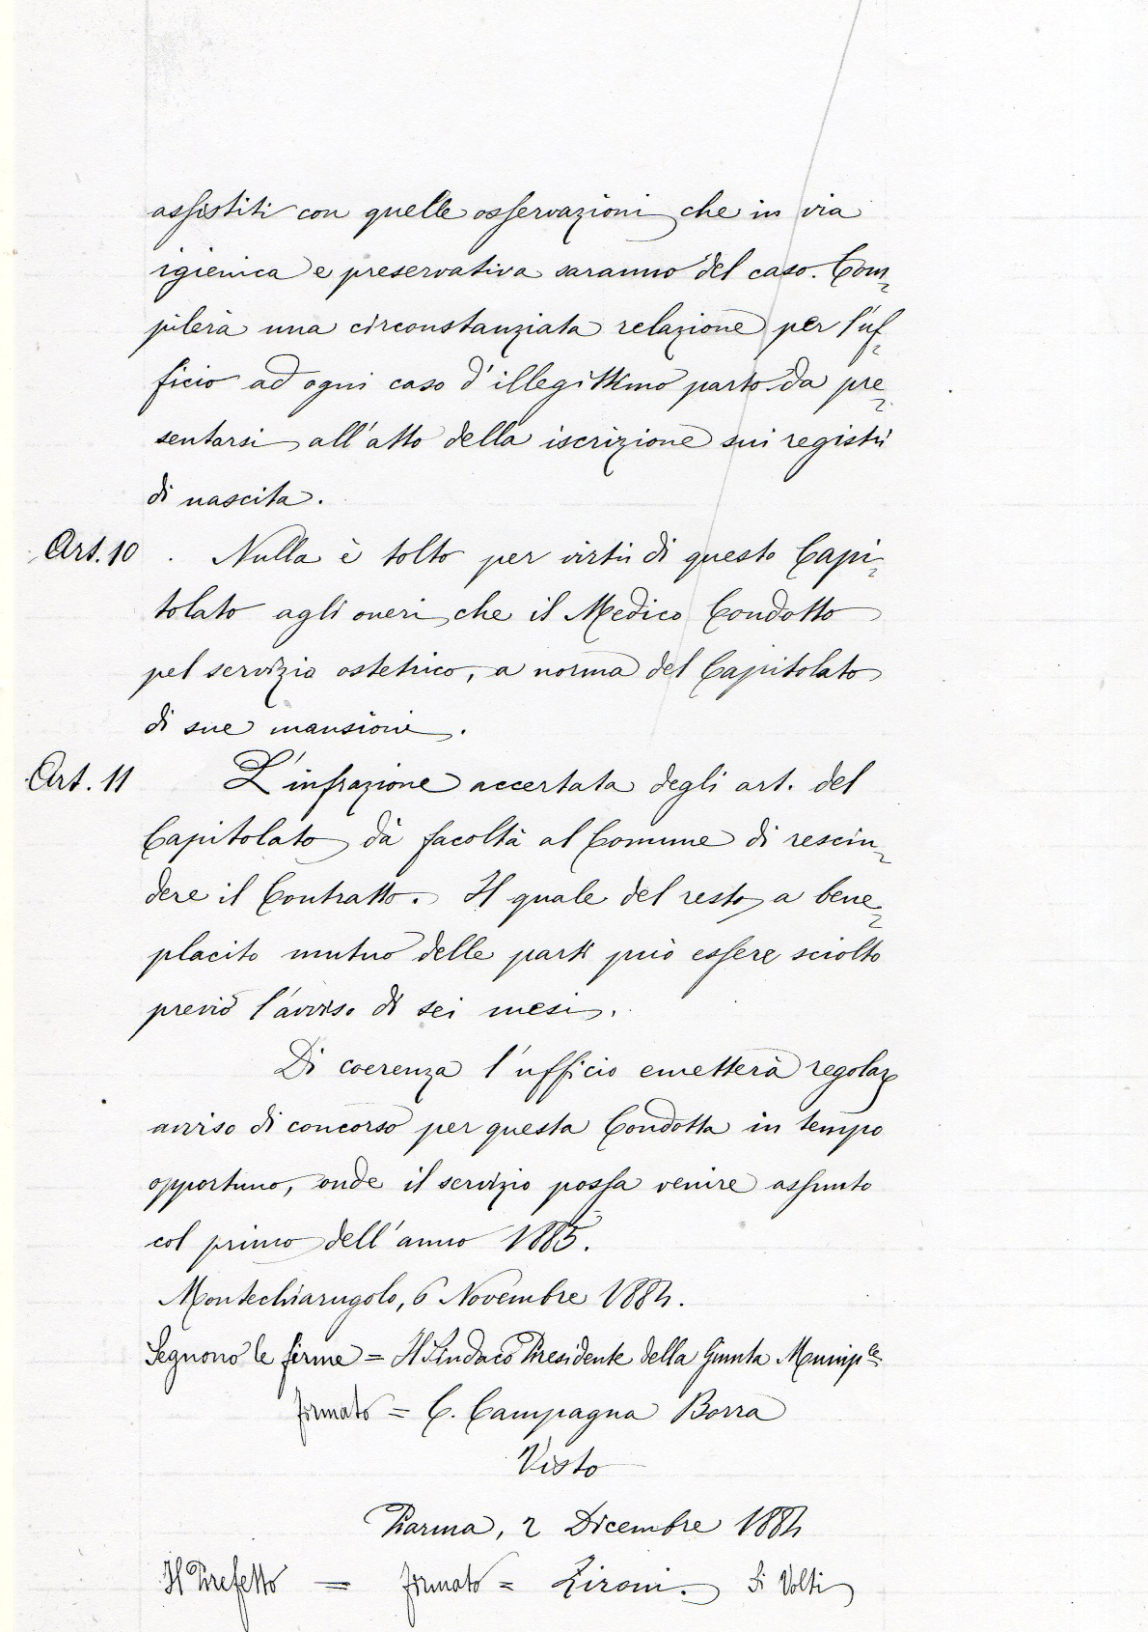 assistiti con quelle osservazioni che in via
igienica e preservativa saranno del caso. Com-
pilerà una circonstanziata relazione per l'uf-
ficio ad ogni caso d'illegittimo parto da pre-
sentarsi all'atto della iscrizione sui registri
di nascita.
Art. 10. Nulla è tolto per virtù di questo Capi-
tolato agli oneri che il Medico Condotto
pel servizio ostetrico, a norma del Capitolato
di sue mansioni.
Art. 11 L'infrazione accertata degli art. del
Capitolato dà facoltà al Comune di rescin-
dere il Contratto. Il quale del resto a bene-
placito mutuo delle parti può essere sciolto
previo l'avviso di sei mesi.
Di coerenza l'ufficio emetterà regolare
avviso di concorso per questa Condotta in tempo
opportuno, onde il servizio possa venire assunto
col primo dell'anno 1885.
Montechiarugolo, 6 Novembre 1884.
Seguono le firme = Il Sindaco Presidente della Giunta Municip.le
firmato = C. Campagna Borra
Visto
Parma, 2 Dicembre 1884
Il Prefetto = firmato = Zironi. Si Volti